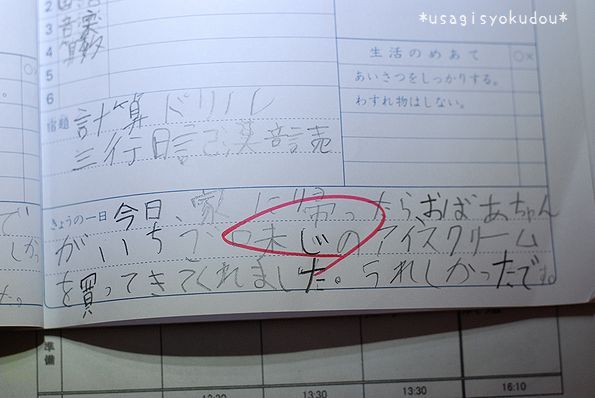 *usagisyokudou*
2
3 音楽
4 算数
5
6
生活のめあて ○×
あいさつをしっかりする。
わすれ物はしない。
宿題
計算ドリル
三行日記、漢音読
きょうの一日 今日、家に帰ったら、おばあちゃん
がいちご味じのアイスクリーム
を買ってきてくれました。うれしかったです。
準備
13:30
13:30
16:10